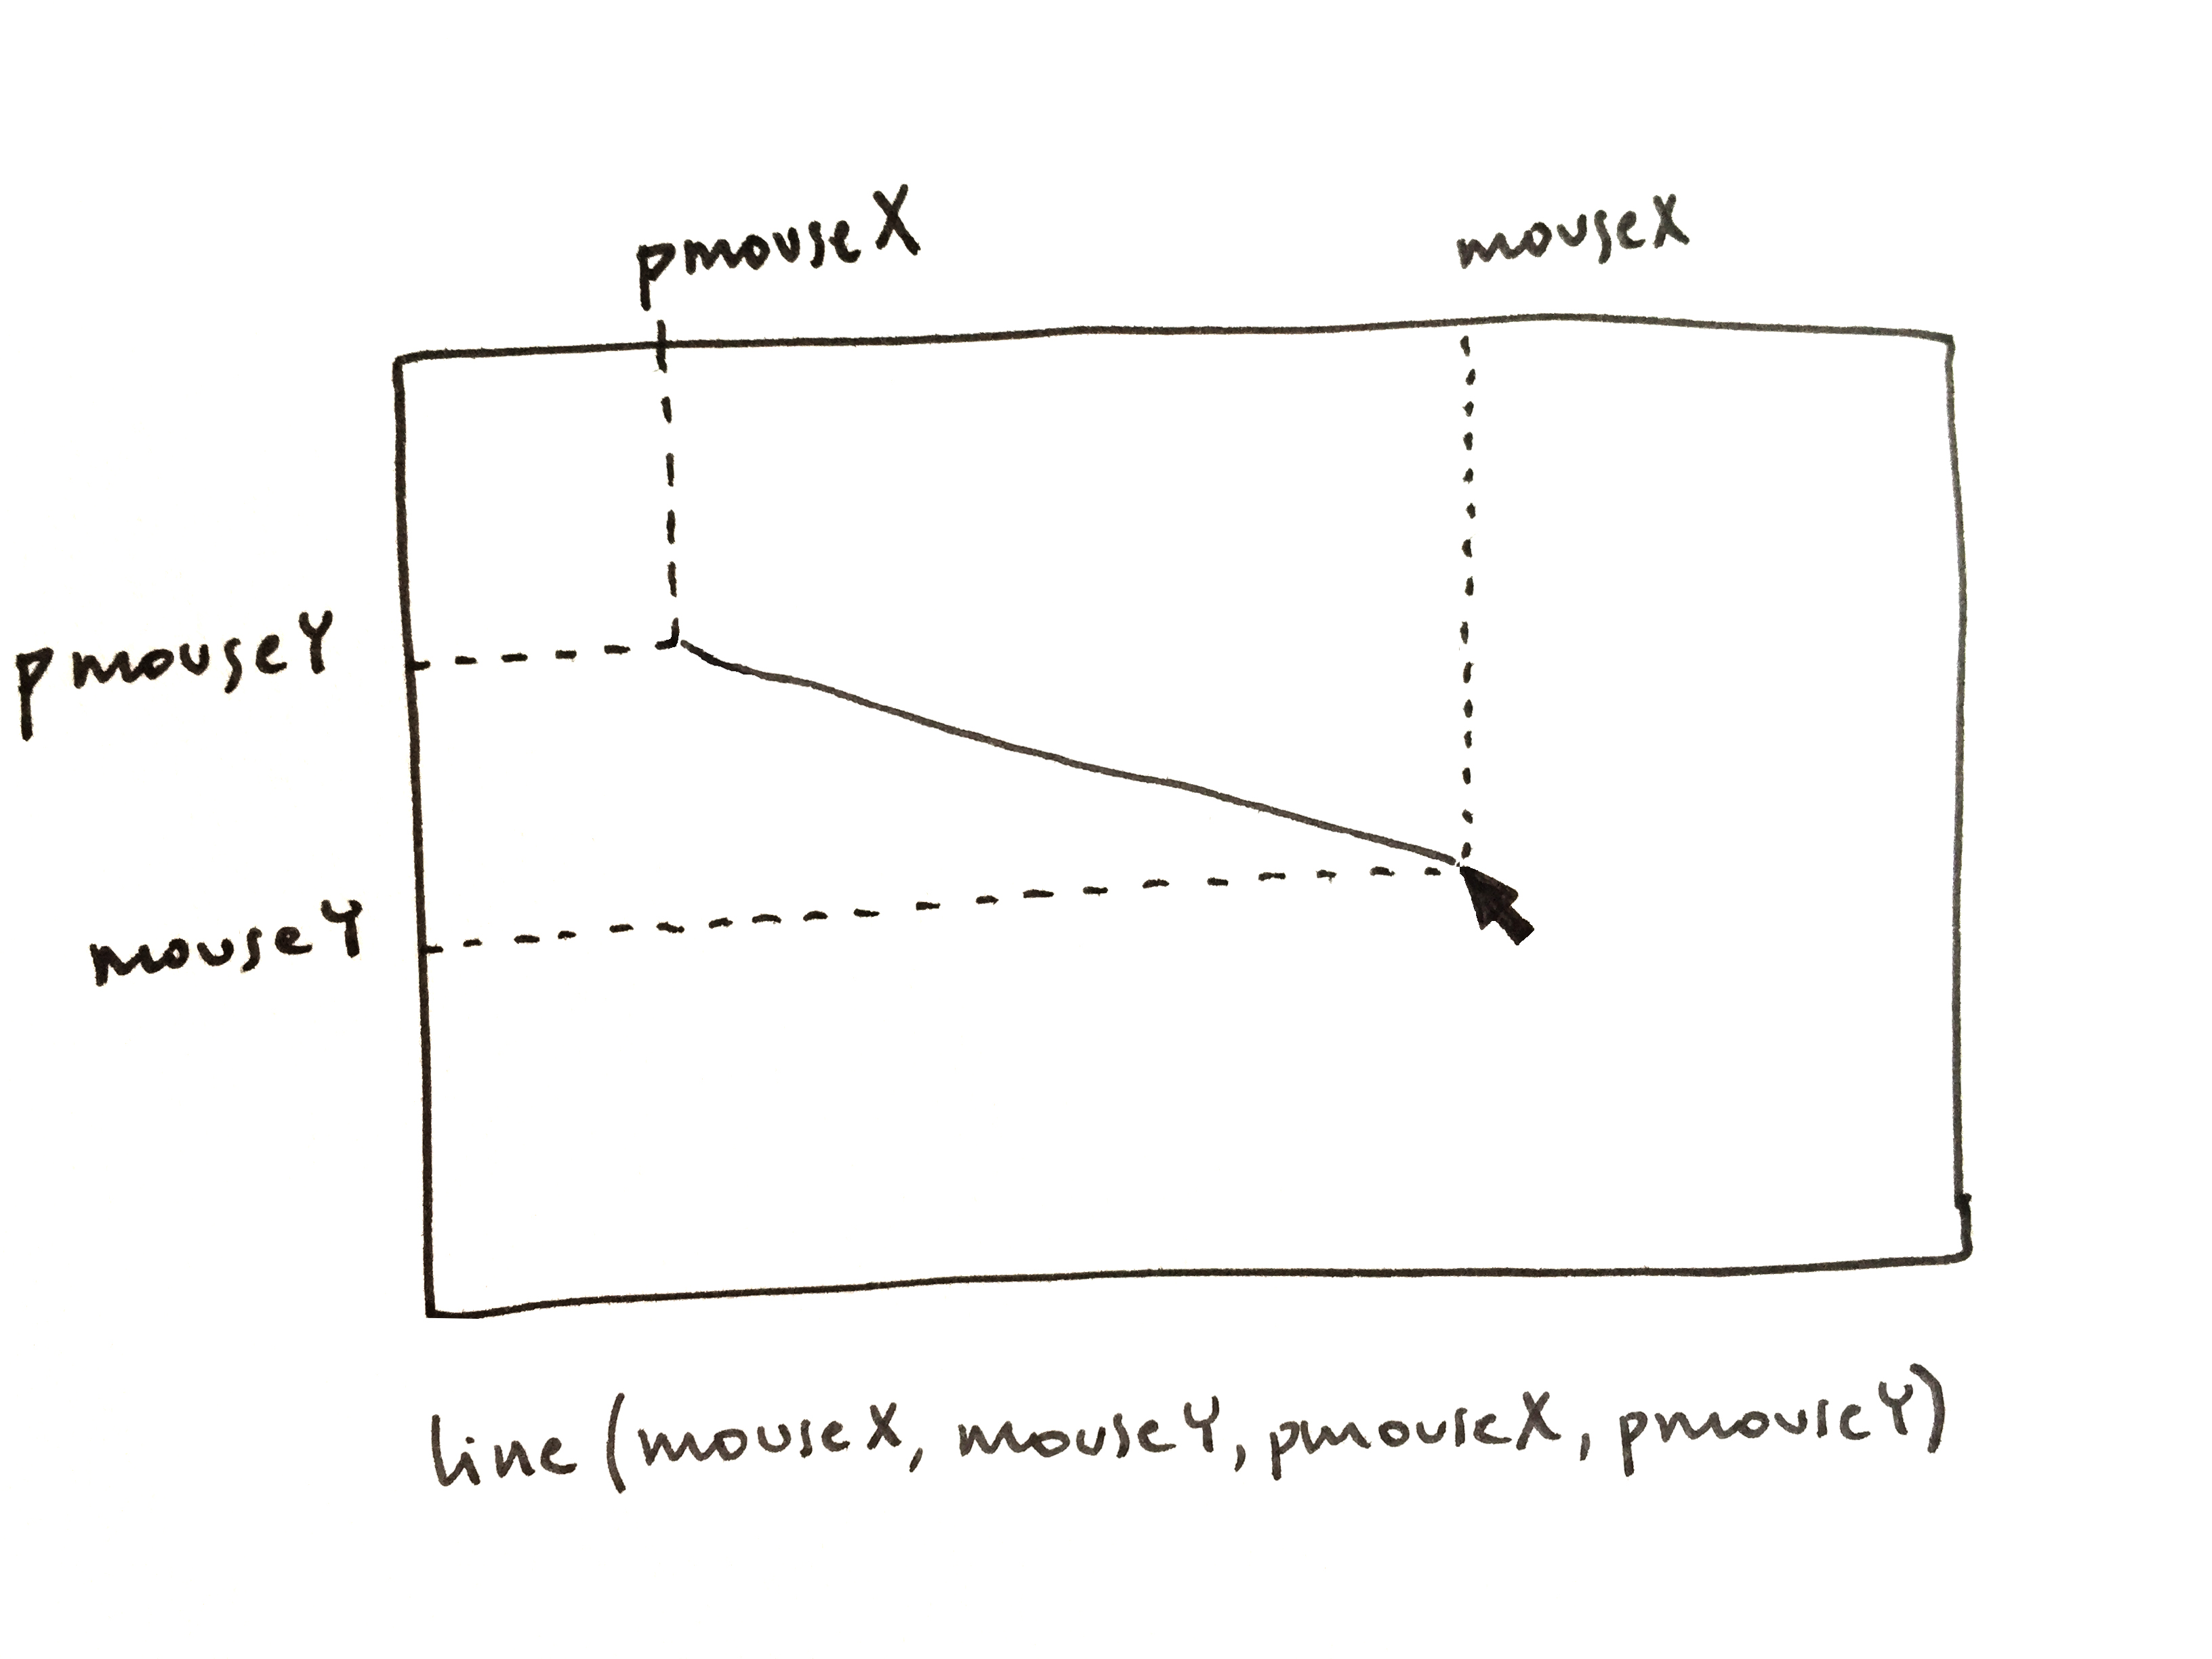 pmouseX
mouseX
pmouseY
mouseY
line (mouseX, mouseY, pmouseX, pmouseY)